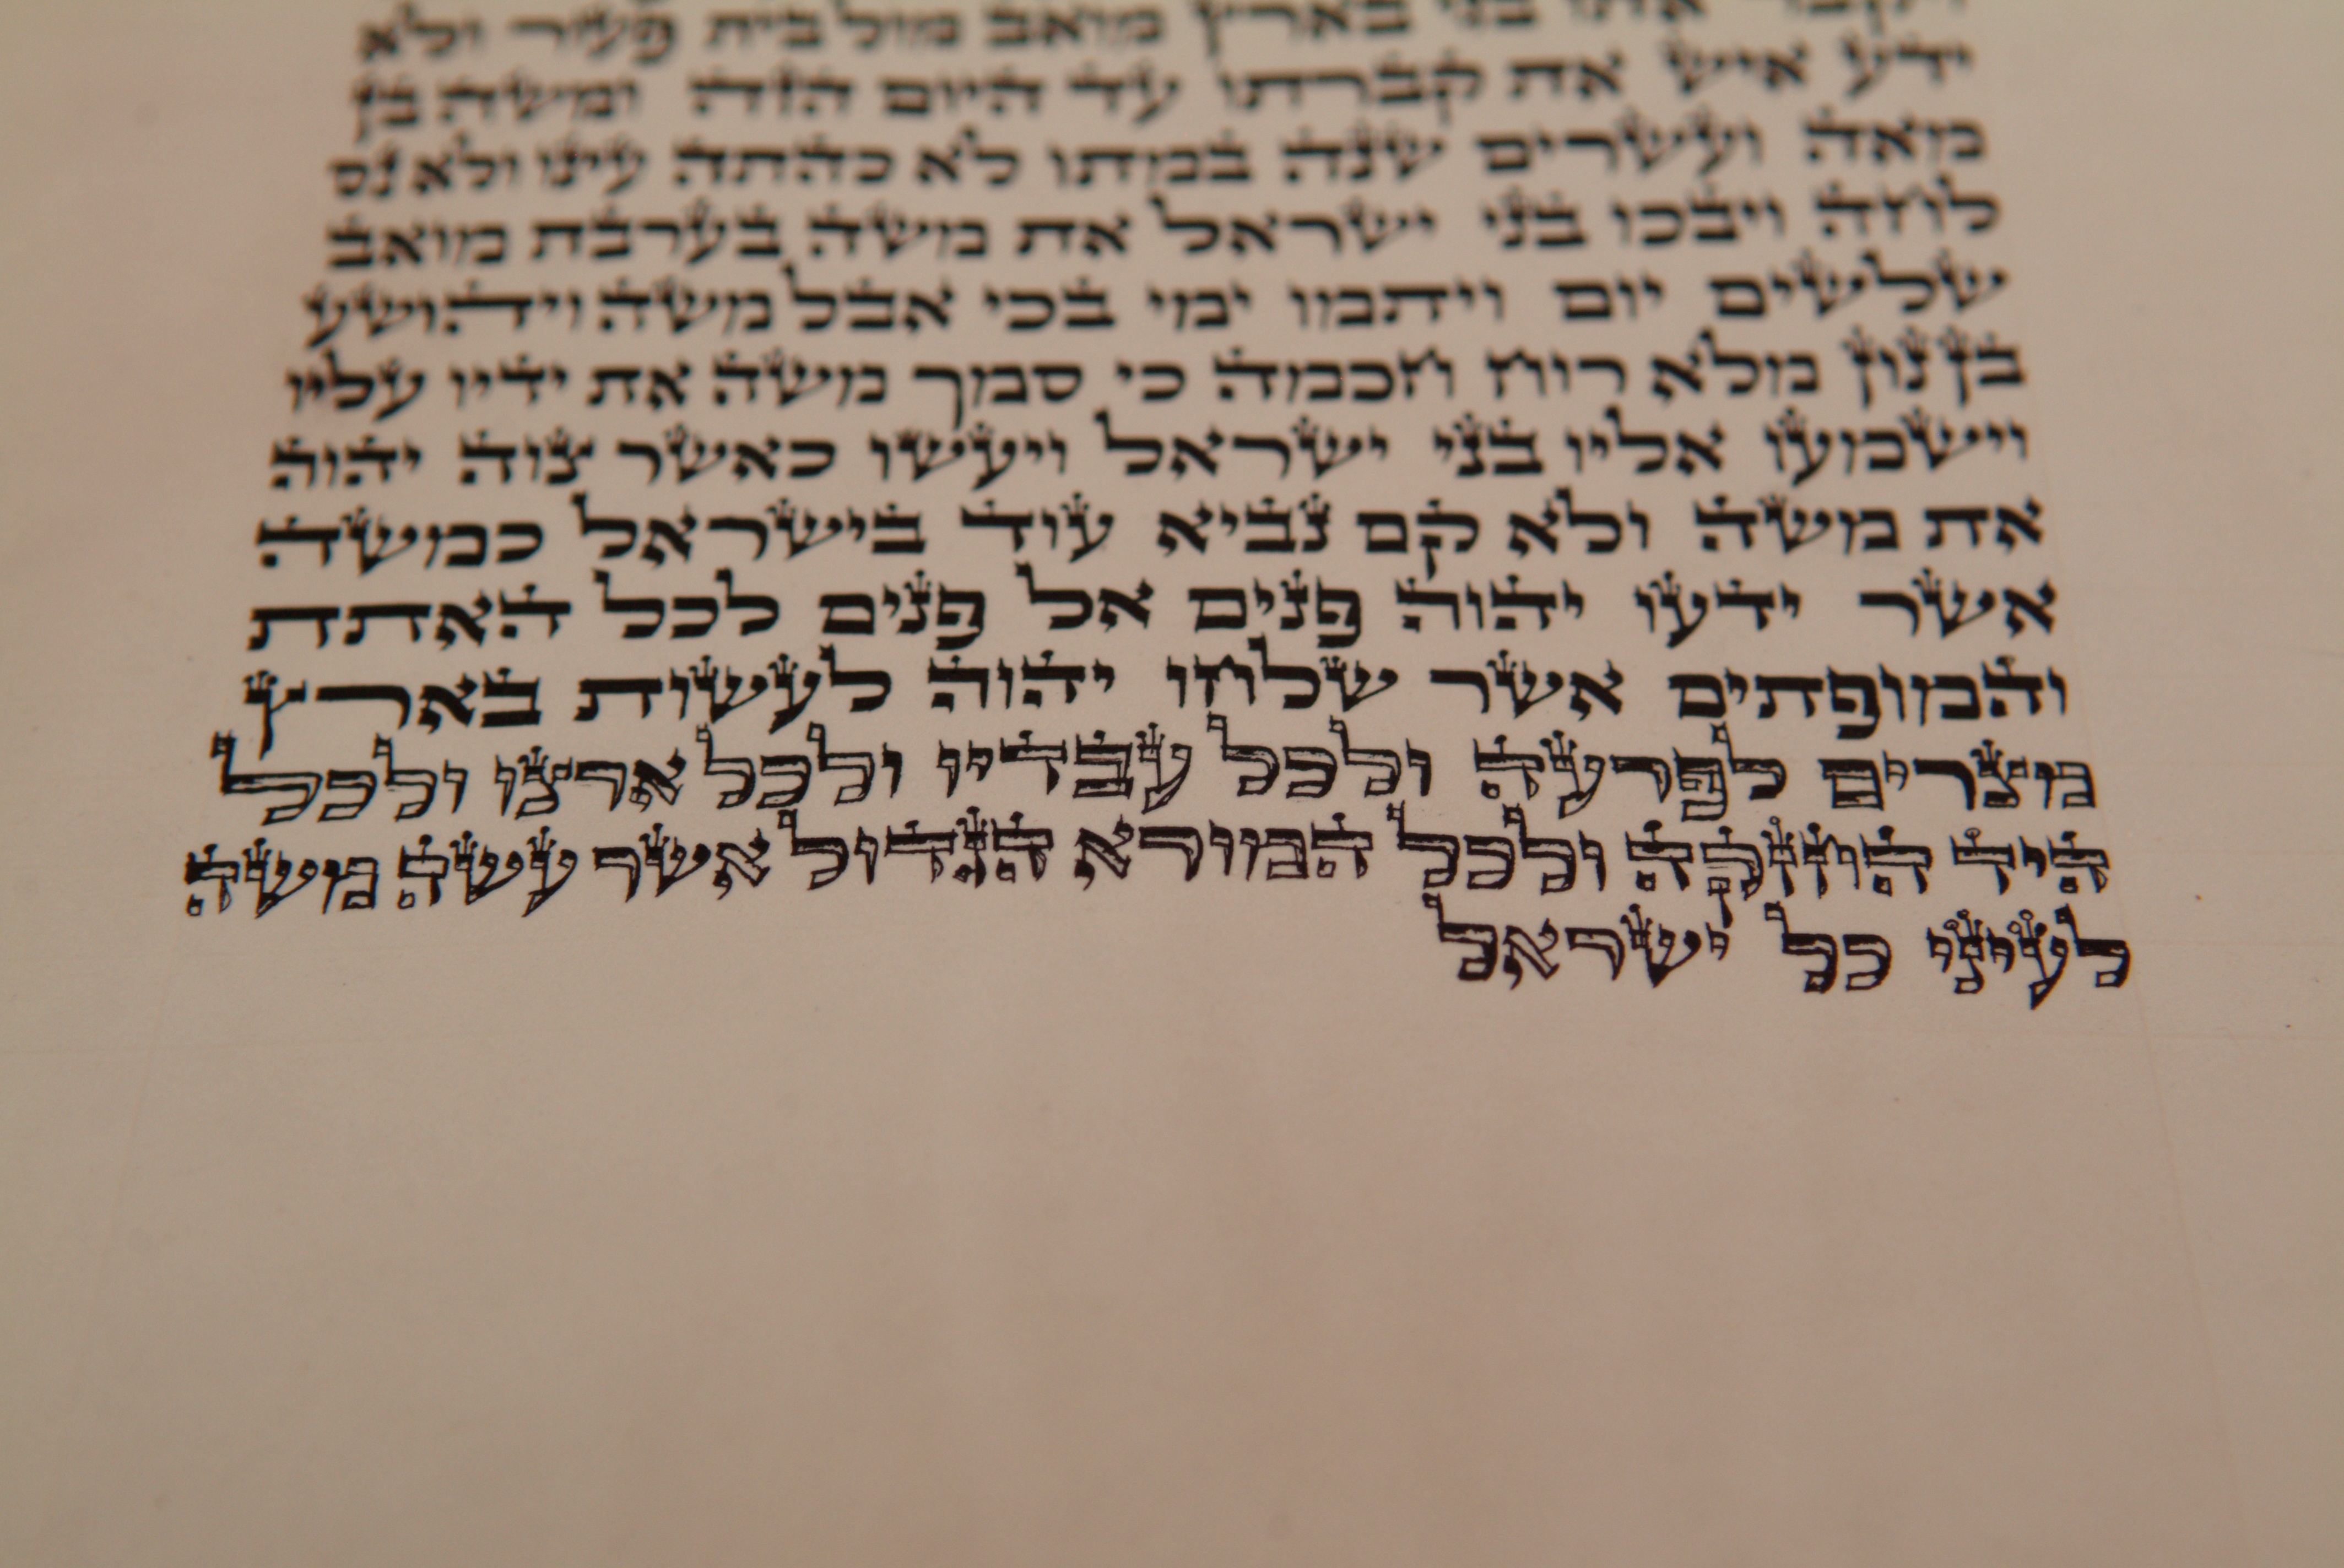 בארץ מואב מול בית פעור ולא
ידע איש את קברתו עד היום הזה ומשה בן
מאה ועשרים שנה במתו לא כהתה עינו ולא נס
לחה ויבכו בני ישראל את משה בערבת מואב
שלשים יום ויתמו ימי בכי אבל משה ויהושע
בן נון מלא רוח חכמה כי סמך משה את ידיו עליו
וישמעו אליו בני ישראל ויעשו כאשר צוה יהוה
את משה ולא קם נביא עוד בישראל כמשה
אשר ידעו יהוה פנים אל פנים לכל האתת
והמופתים אשר שלחו יהוה לעשות בארץ
מצרים לפרעה ולכל עבדיו ולכל ארצו ולכל
היד החזקה ולכל המורא הגדול אשר עשה משה
לעיני כל ישראל